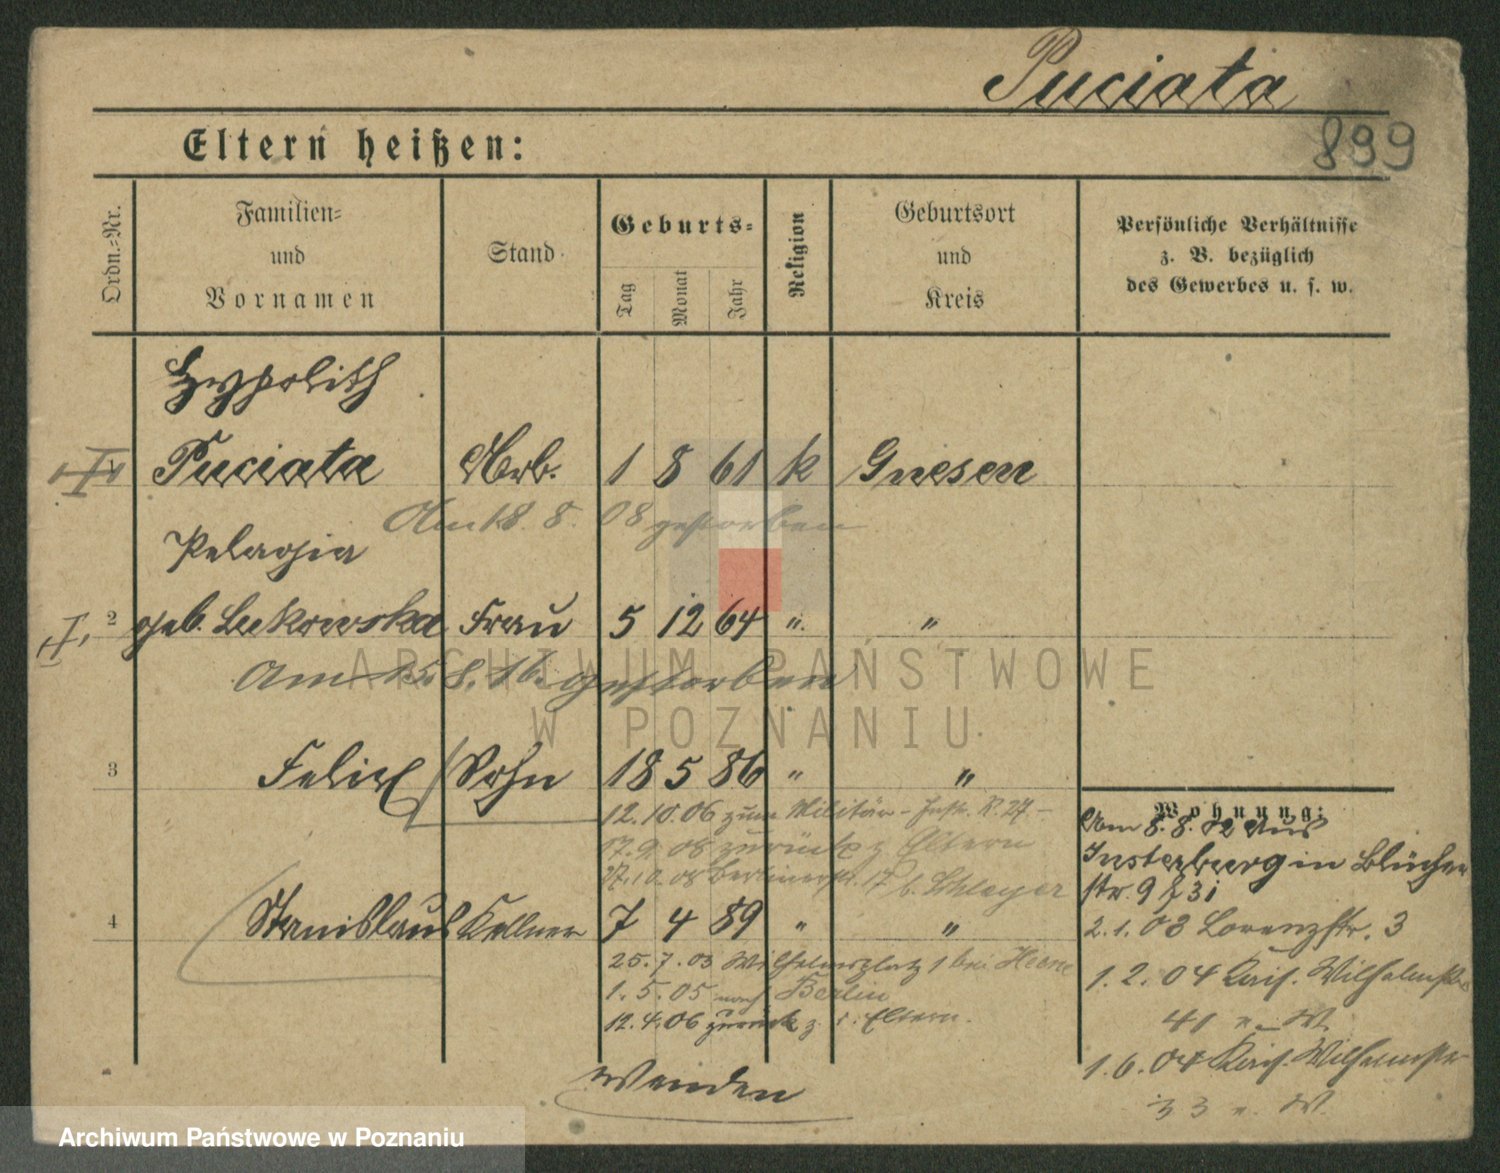 Puciata
899
Eltern heißen:
Ordn.-Nr.
Familien-
und
Vornamen
Stand
Geburts-
Tag
Monat
Jahr
Religion
Geburtsort
und
Kreis
Persönliche Verhältnisse
z. B. bezüglich
des Gewerbes u. s. w.
Hypolith
Puciata Arb. 1 8 61 k Gnesen
Am 18. 8. 08 gestorben
Pelagia
2 geb. Lukowska Frau 5 12 64 " "
Am 15. 8. 16. gestorben
3 Felix Sohn 18 5 86 " "
12.10.06 zum Militär - Inft. R. 27 -
17.9.08 zurück z Eltern
27.10.08 Berlinerstr. 17 b. Schleyer
4 Stanislaus Kellner 7 4 89 " "
25.7.03 Wilhelmsplatz 1 bei Heene
1.5.05 nach Berlin
12.4.06 zurück z. d. Eltern.
Wohnung:
Am 8.8.02 aus
Insterburg in Blücher
str. 9
2.1.03 Lorenzstr. 3
1.2.04 Kais. Wilhelmstr.
41
1.6.04 Kais. Wilhelmstr
33
Wenden
ARCHIWUM PAŃSTWOWE
W POZNANIU
Archiwum Państwowe w Poznaniu